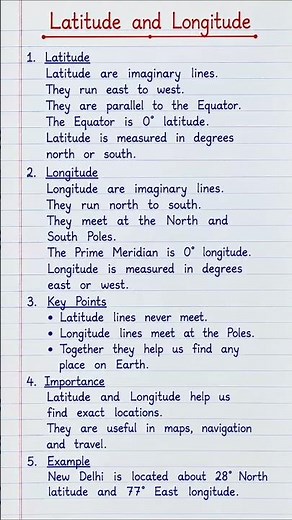 Latitude and Longitude
1. Latitude
Latitude are imaginary lines.
They run east to west.
They are parallel to the Equator.
The Equator is 0° latitude.
Latitude is measured in degrees
north or south.
2. Longitude
Longitude are imaginary lines.
They run north to south.
They meet at the North and
South Poles.
The Prime Meridian is 0° longitude.
Longitude is measured in degrees
east or west.
3. Key Points
• Latitude lines never meet.
• Longitude lines meet at the Poles.
• Together they help us find any
place on Earth.
4. Importance
Latitude and Longitude help us
find exact locations.
They are useful in maps, navigation
and travel.
5. Example
New Delhi is located about 28° North
latitude and 77° East longitude.